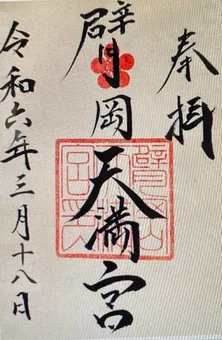 奉拝
臂岡天満宮
令和六年三月十八日